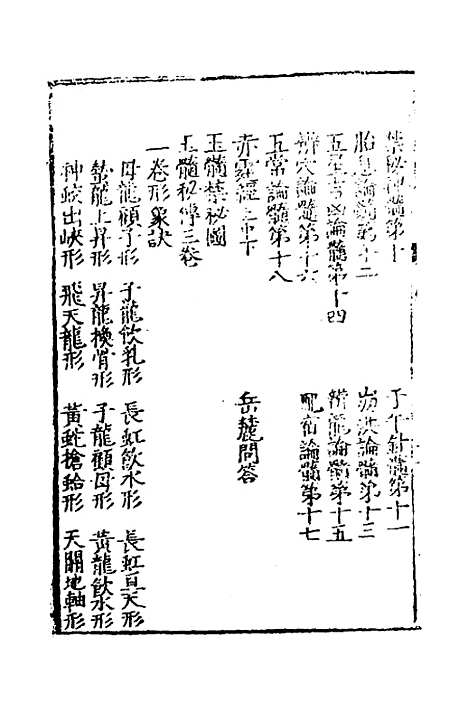 禁秘神髓第十　子午針髓第十一
胎息論髓第十二　崩洪論髓第十三
五星吉凶論髓第十四　辨龍論髓第十五
辨穴論髓第十六　配宿論髓第十七
五常論髓第十八
赤霆經上中下　岳麓問答
玉髓禁秘國
玉髓秘傳三卷
一卷形象訣
母龍顧子形　子龍飲乳形　長虹飲水形　長虹亘天形
蟄龍上昇形　昇龍換骨形　子龍顧母形　黃龍飲水形
神蛟出峽形　飛天龍形　黃蛇搶蛤形　天關地軸形